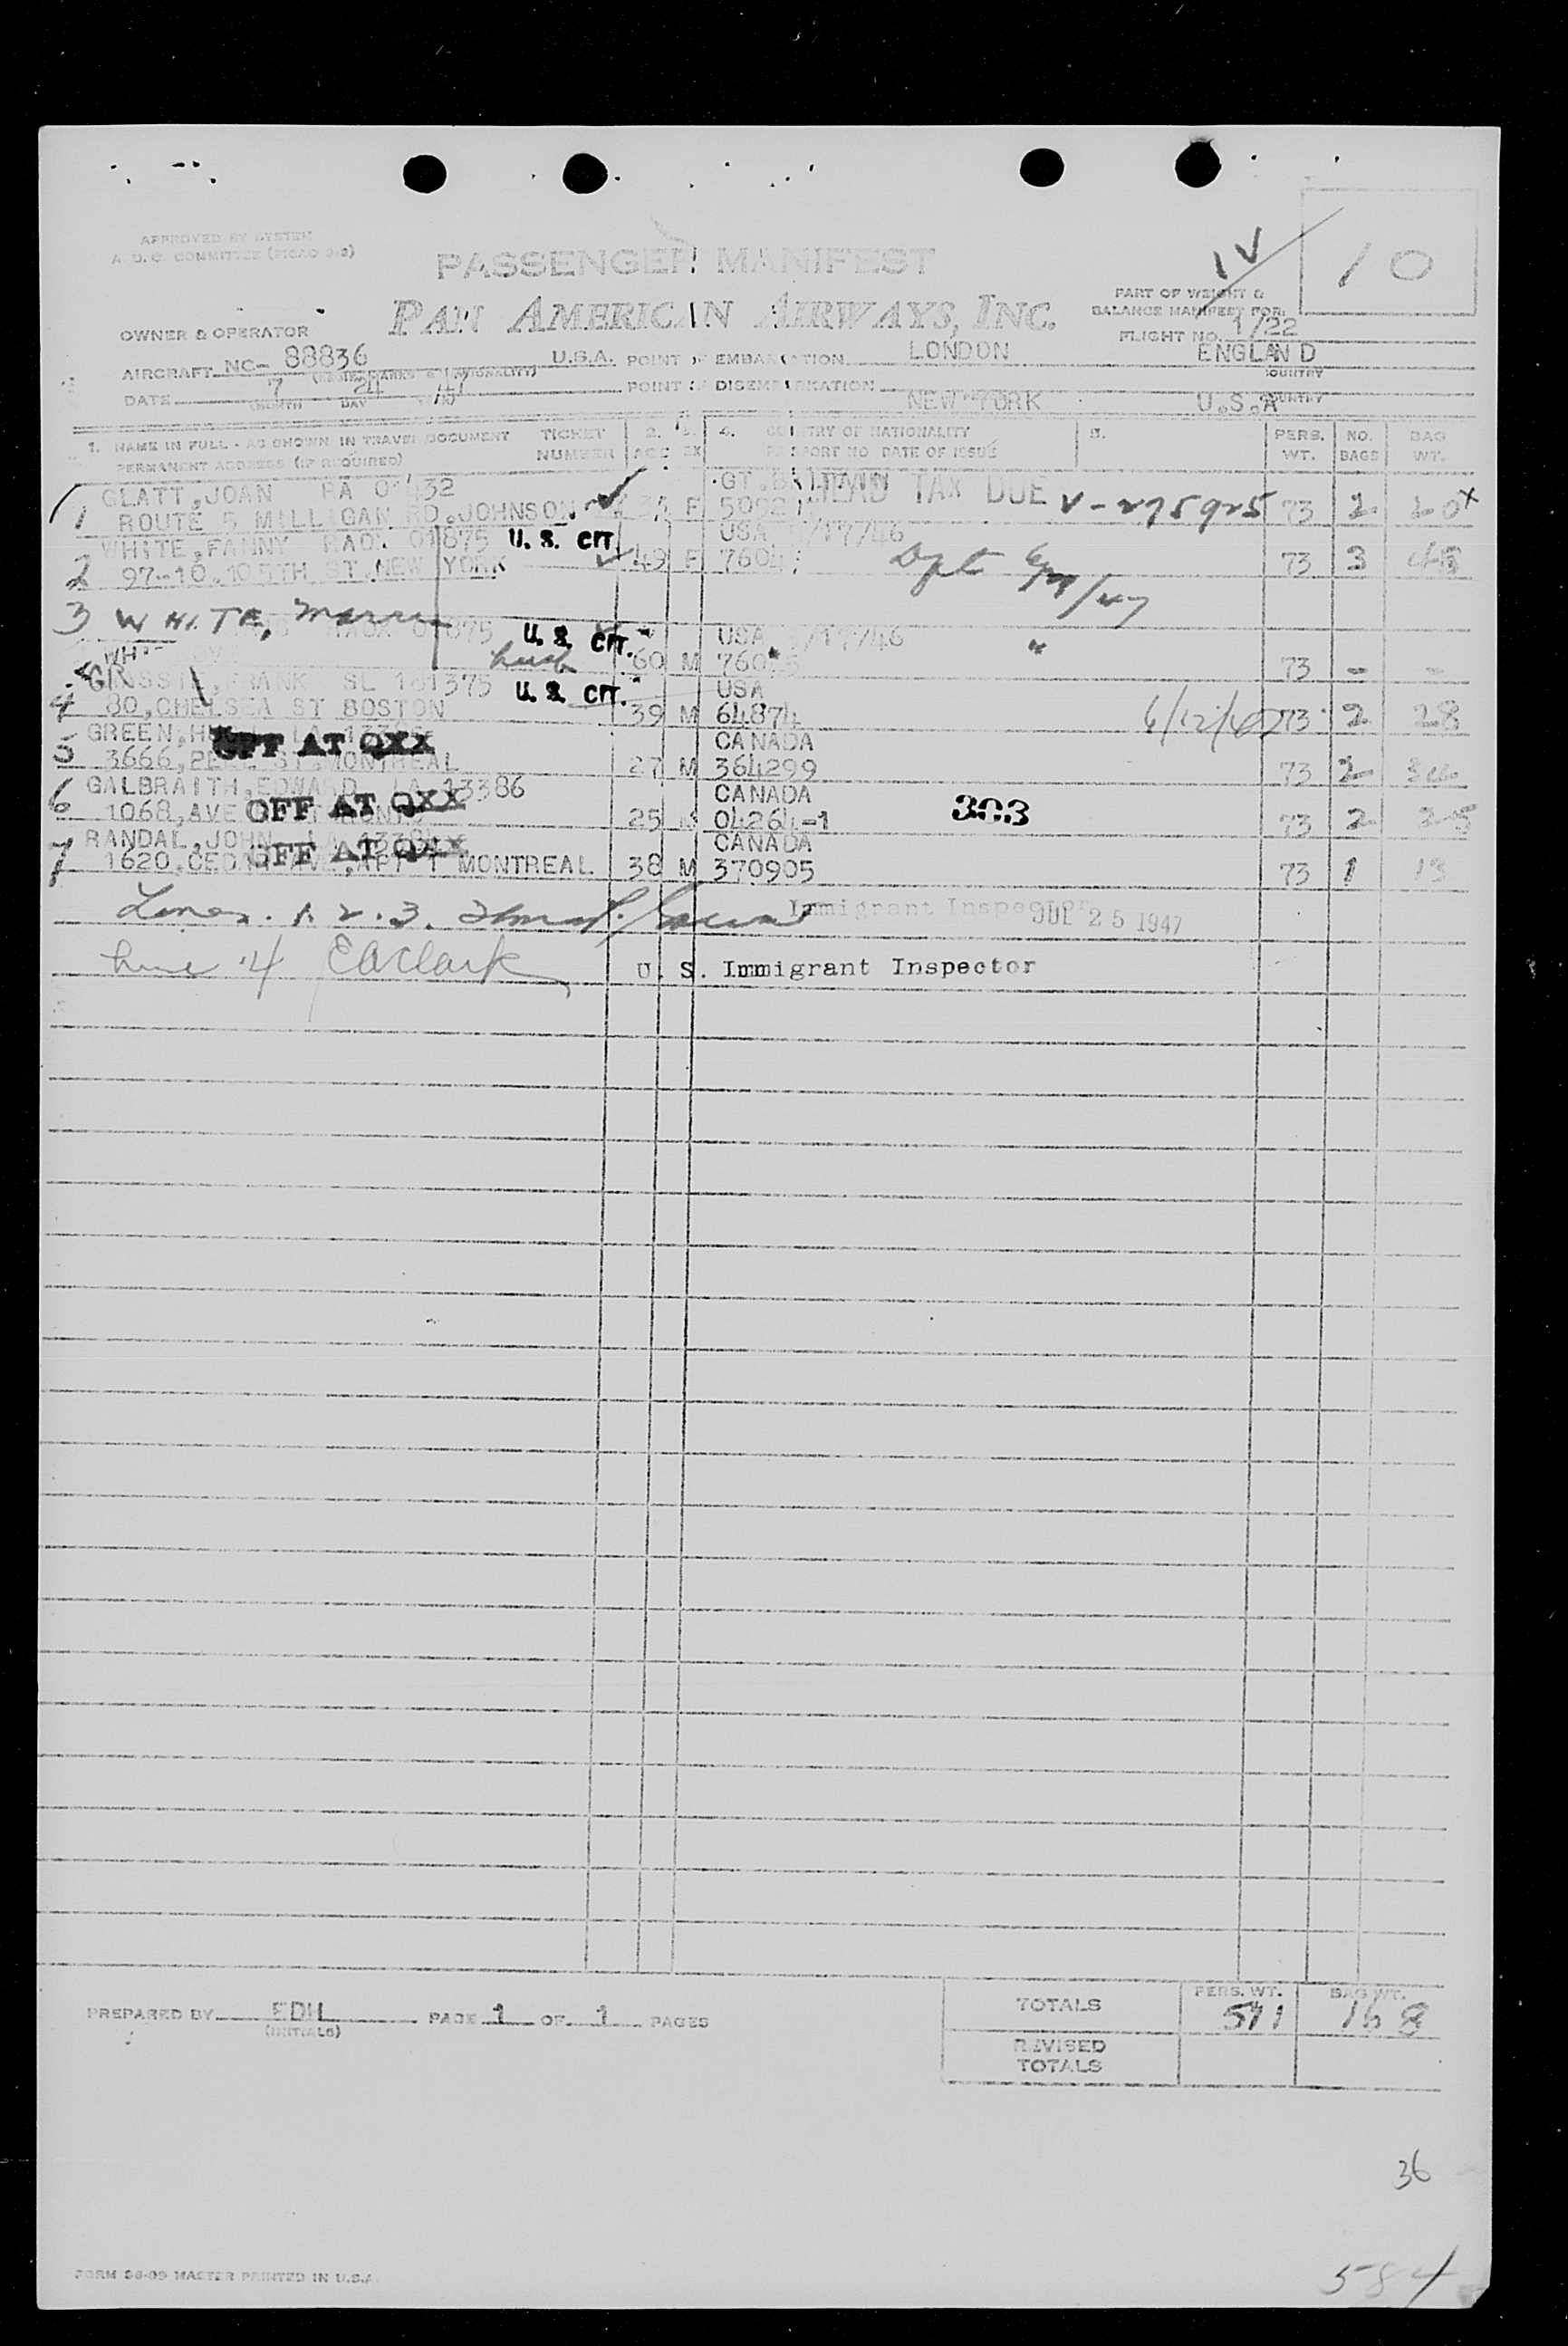 APPROVED BY SYSTEM
A. O. C. COMMITTEE
PASSENGER MANIFEST
PAN AMERICAN AIRWAYS, INC.
10
PART OF WEIGHT &
BALANCE MANIFEST FOR:
OWNER & OPERATOR
FLIGHT NO. 1/22
AIRCRAFT NC- 88836 U.S.A. POINT OF EMBARKATION LONDON ENGLAND
COUNTRY
DATE 7 24 47 POINT OF DISEMBARKATION NEW YORK U.S.A
(MONTH DAY COUNTRY
1. NAME IN FULL - AS SHOWN IN TRAVEL DOCUMENT TICKET 2. 3. 4. COUNTRY OF NATIONALITY 5. PERS. NO. BAG
PERMANENT ADDRESS (IF REQUIRED) NUMBER AGE SEX PASSPORT NO DATE OF ISSUE WT. BAGS WT.
GLATT, JOAN RA GT. BRITAIN HEAD TAX DUE
1 ROUTE 5 MILLIGAN RD. JOHNSON F V-275925 73 2 20 x
WHITE, FANNY RAOX 01875 U. S. CIT. USA /17/46
2 97-10.105TH ST. NEW YORK 49 F 73 3
3 WHITE, RAOX 01875 U. S. CIT. USA /17/46 "
60 M 73 - -
FRANK SL 181375 U. S. CIT. USA
4 80, CHELSEA ST BOSTON 39 M 64874 73 2 28
GREEN, OFF AT QXX CANADA
5 3666, PEEL ST. MONTREAL 27 M 364299 73 2
GALBRAITH, EDWARD LA 13386 CANADA
6 1068, AVE OFF AT QXX 25 M 303 73 2
RANDAL, JOHN LA OFF AT QXX CANADA
7 1620, CEDAR AVE, APT 1 MONTREAL 38 M 370905 73 1 13
Lines. 1. 2. 3. Immigrant Inspector JUL 25 1947
Line 4 EAClark U. S. Immigrant Inspector
PREPARED BY EDH PAGE 1 OF 1 PAGES
(INITIALS)
TOTALS PERS. WT. 511 BAG WT. 168
REVISED
TOTALS
36
584
FORM 86-09 MASTER PRINTED IN U.S.A.